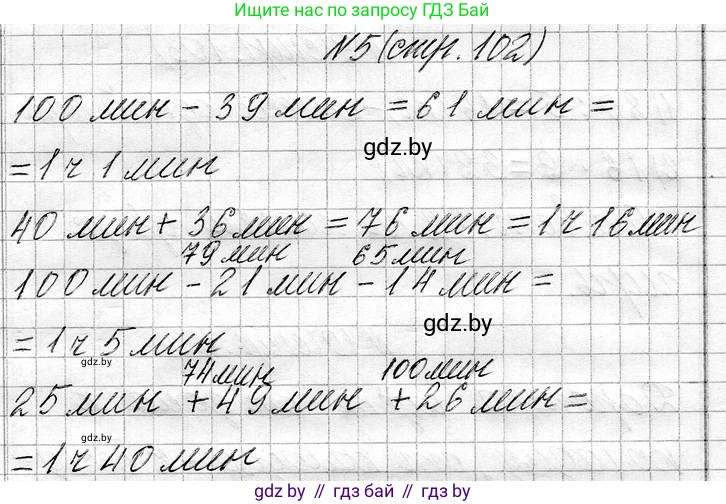 Ищите нас по запросу ГДЗ Бай
№5 (стр. 102)
100 мин - 39 мин = 61 мин =
gdz.by
= 1 ч 1 мин
40 мин + 36 мин = 76 мин = 1 ч 16 мин
79 мин 65 мин
100 мин - 21 мин - 14 мин =
gdz.by
= 1 ч 5 мин
gdz.by
74 мин 100 мин
25 мин + 49 мин + 26 мин =
gdz.by
= 1 ч 40 мин
gdz.by // гдз бай // gdz.by